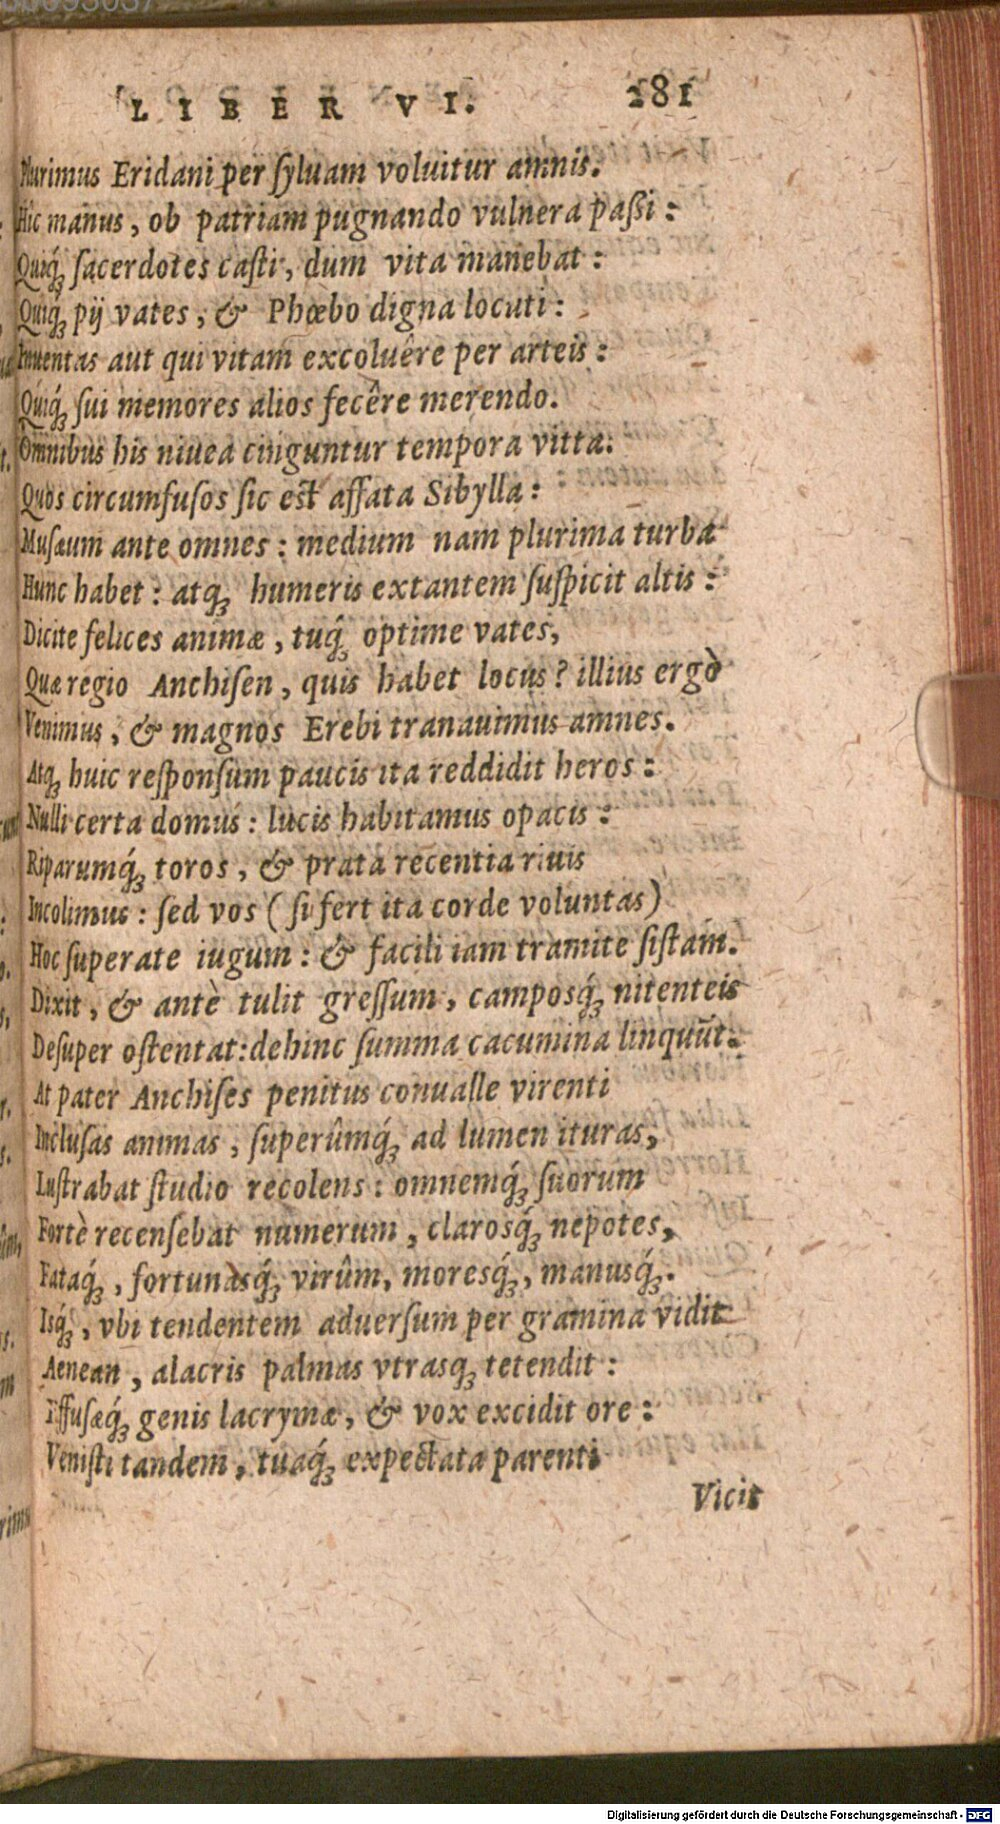 LIBER VI. 281
Plurimus Eridani per ſyluam voluitur amnis.
Hic manus, ob patriam pugnando vulnera paſſi:
Quiq́ꝫ ſacerdotes caſti, dum vita manebat:
Quiq́ꝫ pij vates, & Phœbo digna locuti:
Inuentas aut qui vitam excoluêre per arteis:
Quiq́ꝫ ſui memores alios fecêre merendo.
Omnibus his niuea cinguntur tempora vitta.
Quos circumfuſos ſic est affata Sibylla:
Muſæum ante omnes: medium nam plurima turba
Hunc habet: atqꝫ humeris extantem ſuſpicit altis:
Dicite felices animæ, tuq́ꝫ optime vates,
Quæ regio Anchiſen, quis habet locus? illius ergò
Venimus, & magnos Erebi tranauimus amnes.
Atqꝫ huic reſponſum paucis ita reddidit heros:
Nulli certa domus: lucis habitamus opacis:
Riparumq́ꝫ toros, & prata recentia riuis
Incolimus: ſed vos (ſi fert ita corde voluntas)
Hoc ſuperate iugum: & facili iam tramite ſiſtam.
Dixit, & antè tulit greſſum, camposq́ꝫ nitenteis
Deſuper oſtentat: dehinc ſumma cacumina linquūt:
At pater Anchiſes penitus conualle virenti
Incluſas animas, ſuperûmq́ꝫ ad lumen ituras,
Luſtrabat ſtudio recolens: omnemq́ꝫ ſuorum
Fortè recenſebat numerum, clarosq́ꝫ nepotes,
Fataq́ꝫ, fortunasq́ꝫ virûm, moresq́ꝫ, manusq́ꝫ.
Isq́ꝫ, vbi tendentem aduerſum per gramina vidit
Aenean, alacris palmas vtrasqꝫ tetendit:
Effuſæq́ꝫ genis lacrymæ, & vox excidit ore:
Veniſti tandem, tuaq́ꝫ expectata parenti
Vicit
Digitalisierung gefördert durch die Deutsche Forschungsgemeinschaft - DFG